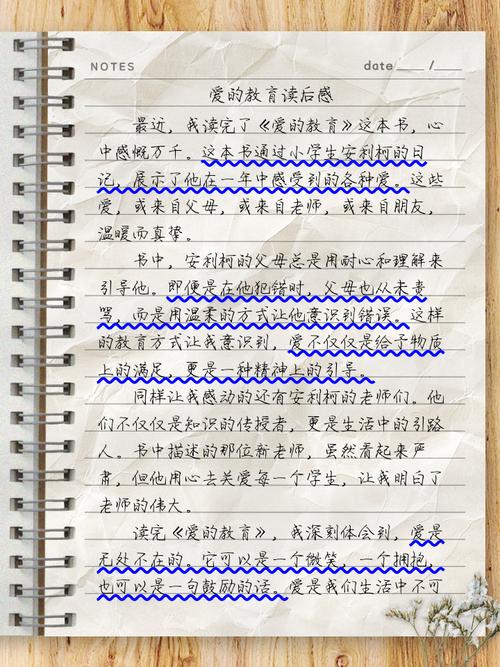 NOTES
date ____ / ____
爱的教育读后感
最近，我读完了《爱的教育》这本书，心
中感慨万千。这本书通过小学生安利柯的日
记，展示了他在一年中感受到的各种爱。这些
爱，或来自父母，或来自老师，或来自朋友，
温暖而真挚。
书中，安利柯的父母总是用耐心和理解来
引导他。即便是在他犯错时，父母也从未责
骂，而是用温柔的方式让他意识到错误。这样
的教育方式让我意识到，爱不仅仅是给予物质
上的满足，更是一种精神上的引导。
同样让我感动的还有安利柯的老师们。他
们不仅仅是知识的传授者，更是生活中的引路
人。书中描述的那位新老师，虽然看起来严
肃，但他用心去关爱每一个学生，让我明白了
老师的伟大。
读完《爱的教育》，我深刻体会到，爱是
无处不在的。它可以是一个微笑，一个拥抱，
也可以是一句鼓励的话。爱是我们生活中不可